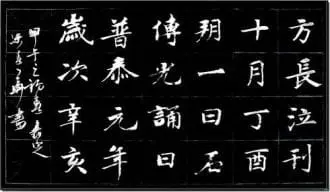 方長泣刊
十月丁酉
朔一日石
傳光誦曰
普泰元年
歲次辛亥
甲午之初夏
書